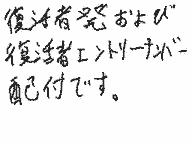 復活者発および
復活者エントリーナンバー
配付です。